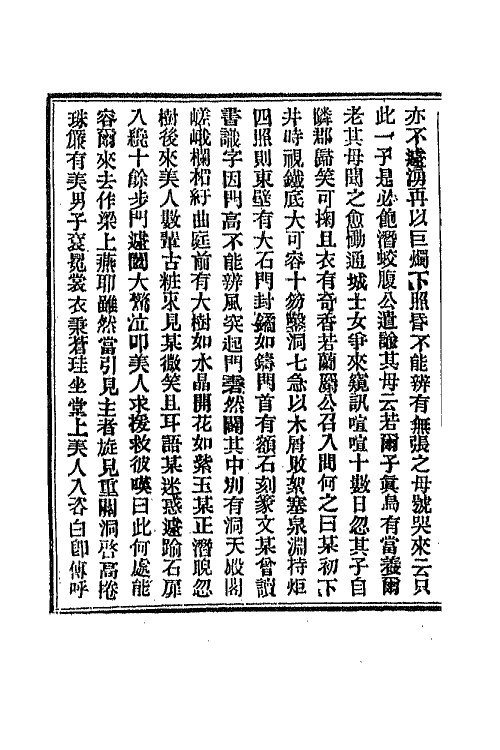 亦不遽湧再以巨燭下照昏不能辨有無張之母號哭來云只
此一子是必飽潛蛟腹公遣諭其母云若爾子眞鳥有當養爾
老其母聞之愈慟通城士女爭來窺訊喧喧十數日忽其子自
隣郡歸笑可掬且衣有奇香若蘭麝公召入問何之曰某初下
井時視鐵底大可容十笏鑿洞七急以木屑敗絮塞泉淵持炬
四照則東壁有大石門封鐍如鑄門首有額石刻篆文某曾讀
書識字因門高不能辨風突起門砉然闢其中別有洞天殿閣
嵯峨欄楯紆曲庭前有大樹如水晶開花如紫玉某正潛睨忽
樹後來美人數輩古粧束見某微笑且耳語某迷惑遽踰石扉
入繞十餘步門遽闔大驚泣叩美人求援救彼嘆曰此何處能
容爾來去作梁上燕耶雖然當引見主者旋見重關洞啓高捲
珠簾有美男子袞冕裳衣秉蒼珪坐堂上美人入咨白卽傳呼